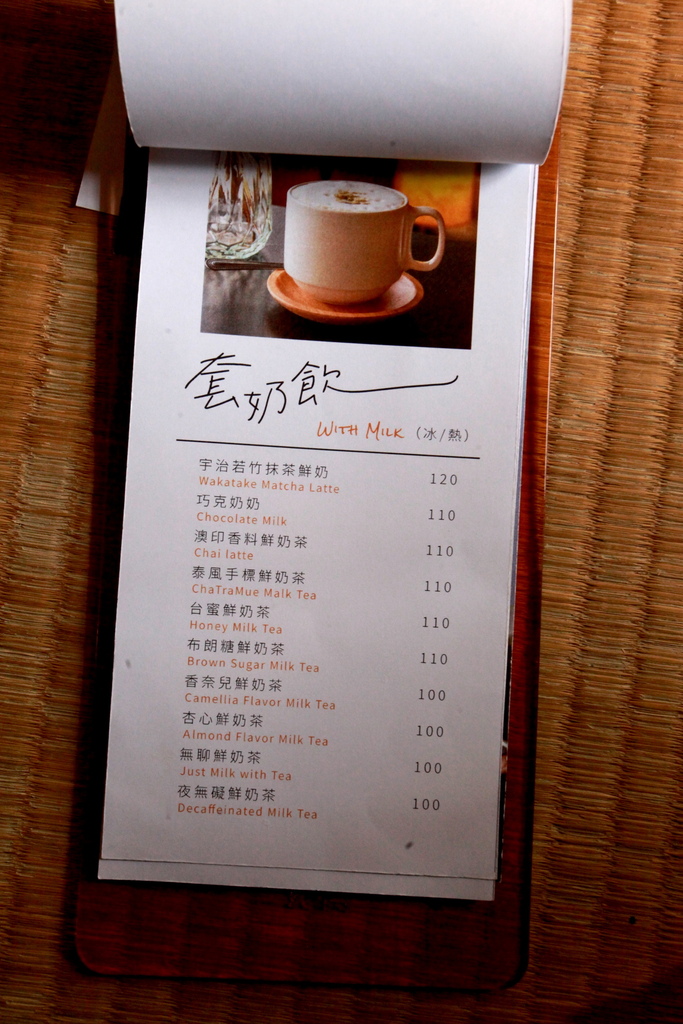 套奶飲
WITH MILK (冰/熱)
宇治若竹抹茶鮮奶 120
Wakatake Matcha Latte
巧克奶奶 110
Chocolate Milk
澳印香料鮮奶茶 110
Chai latte
泰風手標鮮奶茶 110
ChaTraMue Malk Tea
台蜜鮮奶茶 110
Honey Milk Tea
布朗糖鮮奶茶 110
Brown Sugar Milk Tea
香奈兒鮮奶茶 100
Camellia Flavor Milk Tea
杏心鮮奶茶 100
Almond Flavor Milk Tea
無聊鮮奶茶 100
Just Milk with Tea
夜無礙鮮奶茶 100
Decaffeinated Milk Tea